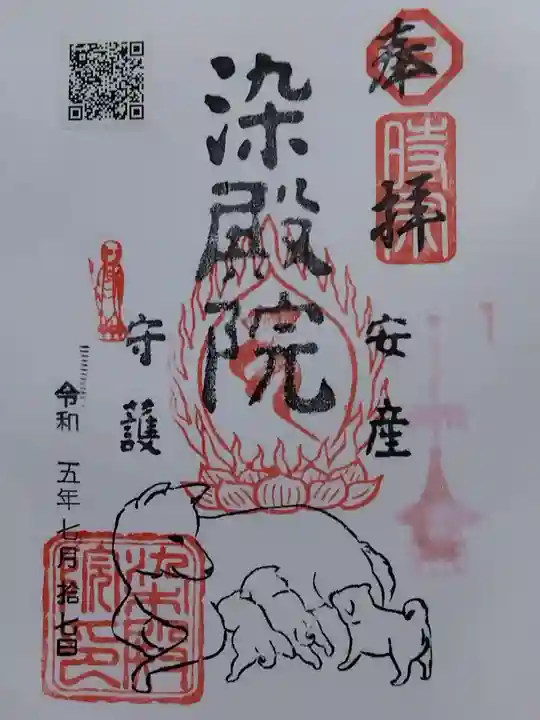 奉拝
時宗
安産
染殿院
守護
令和 五年七月拾七日
染殿院印